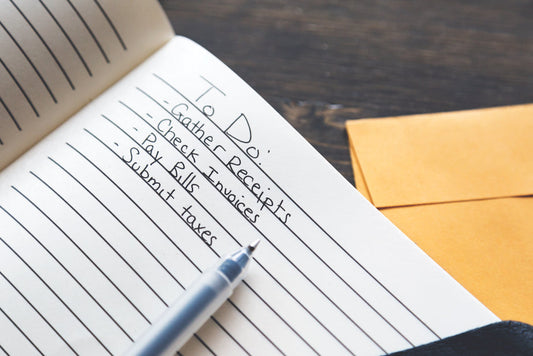 To Do:
- Gather Receipts
- Check Invoices
- Pay Bills
- Submit taxes